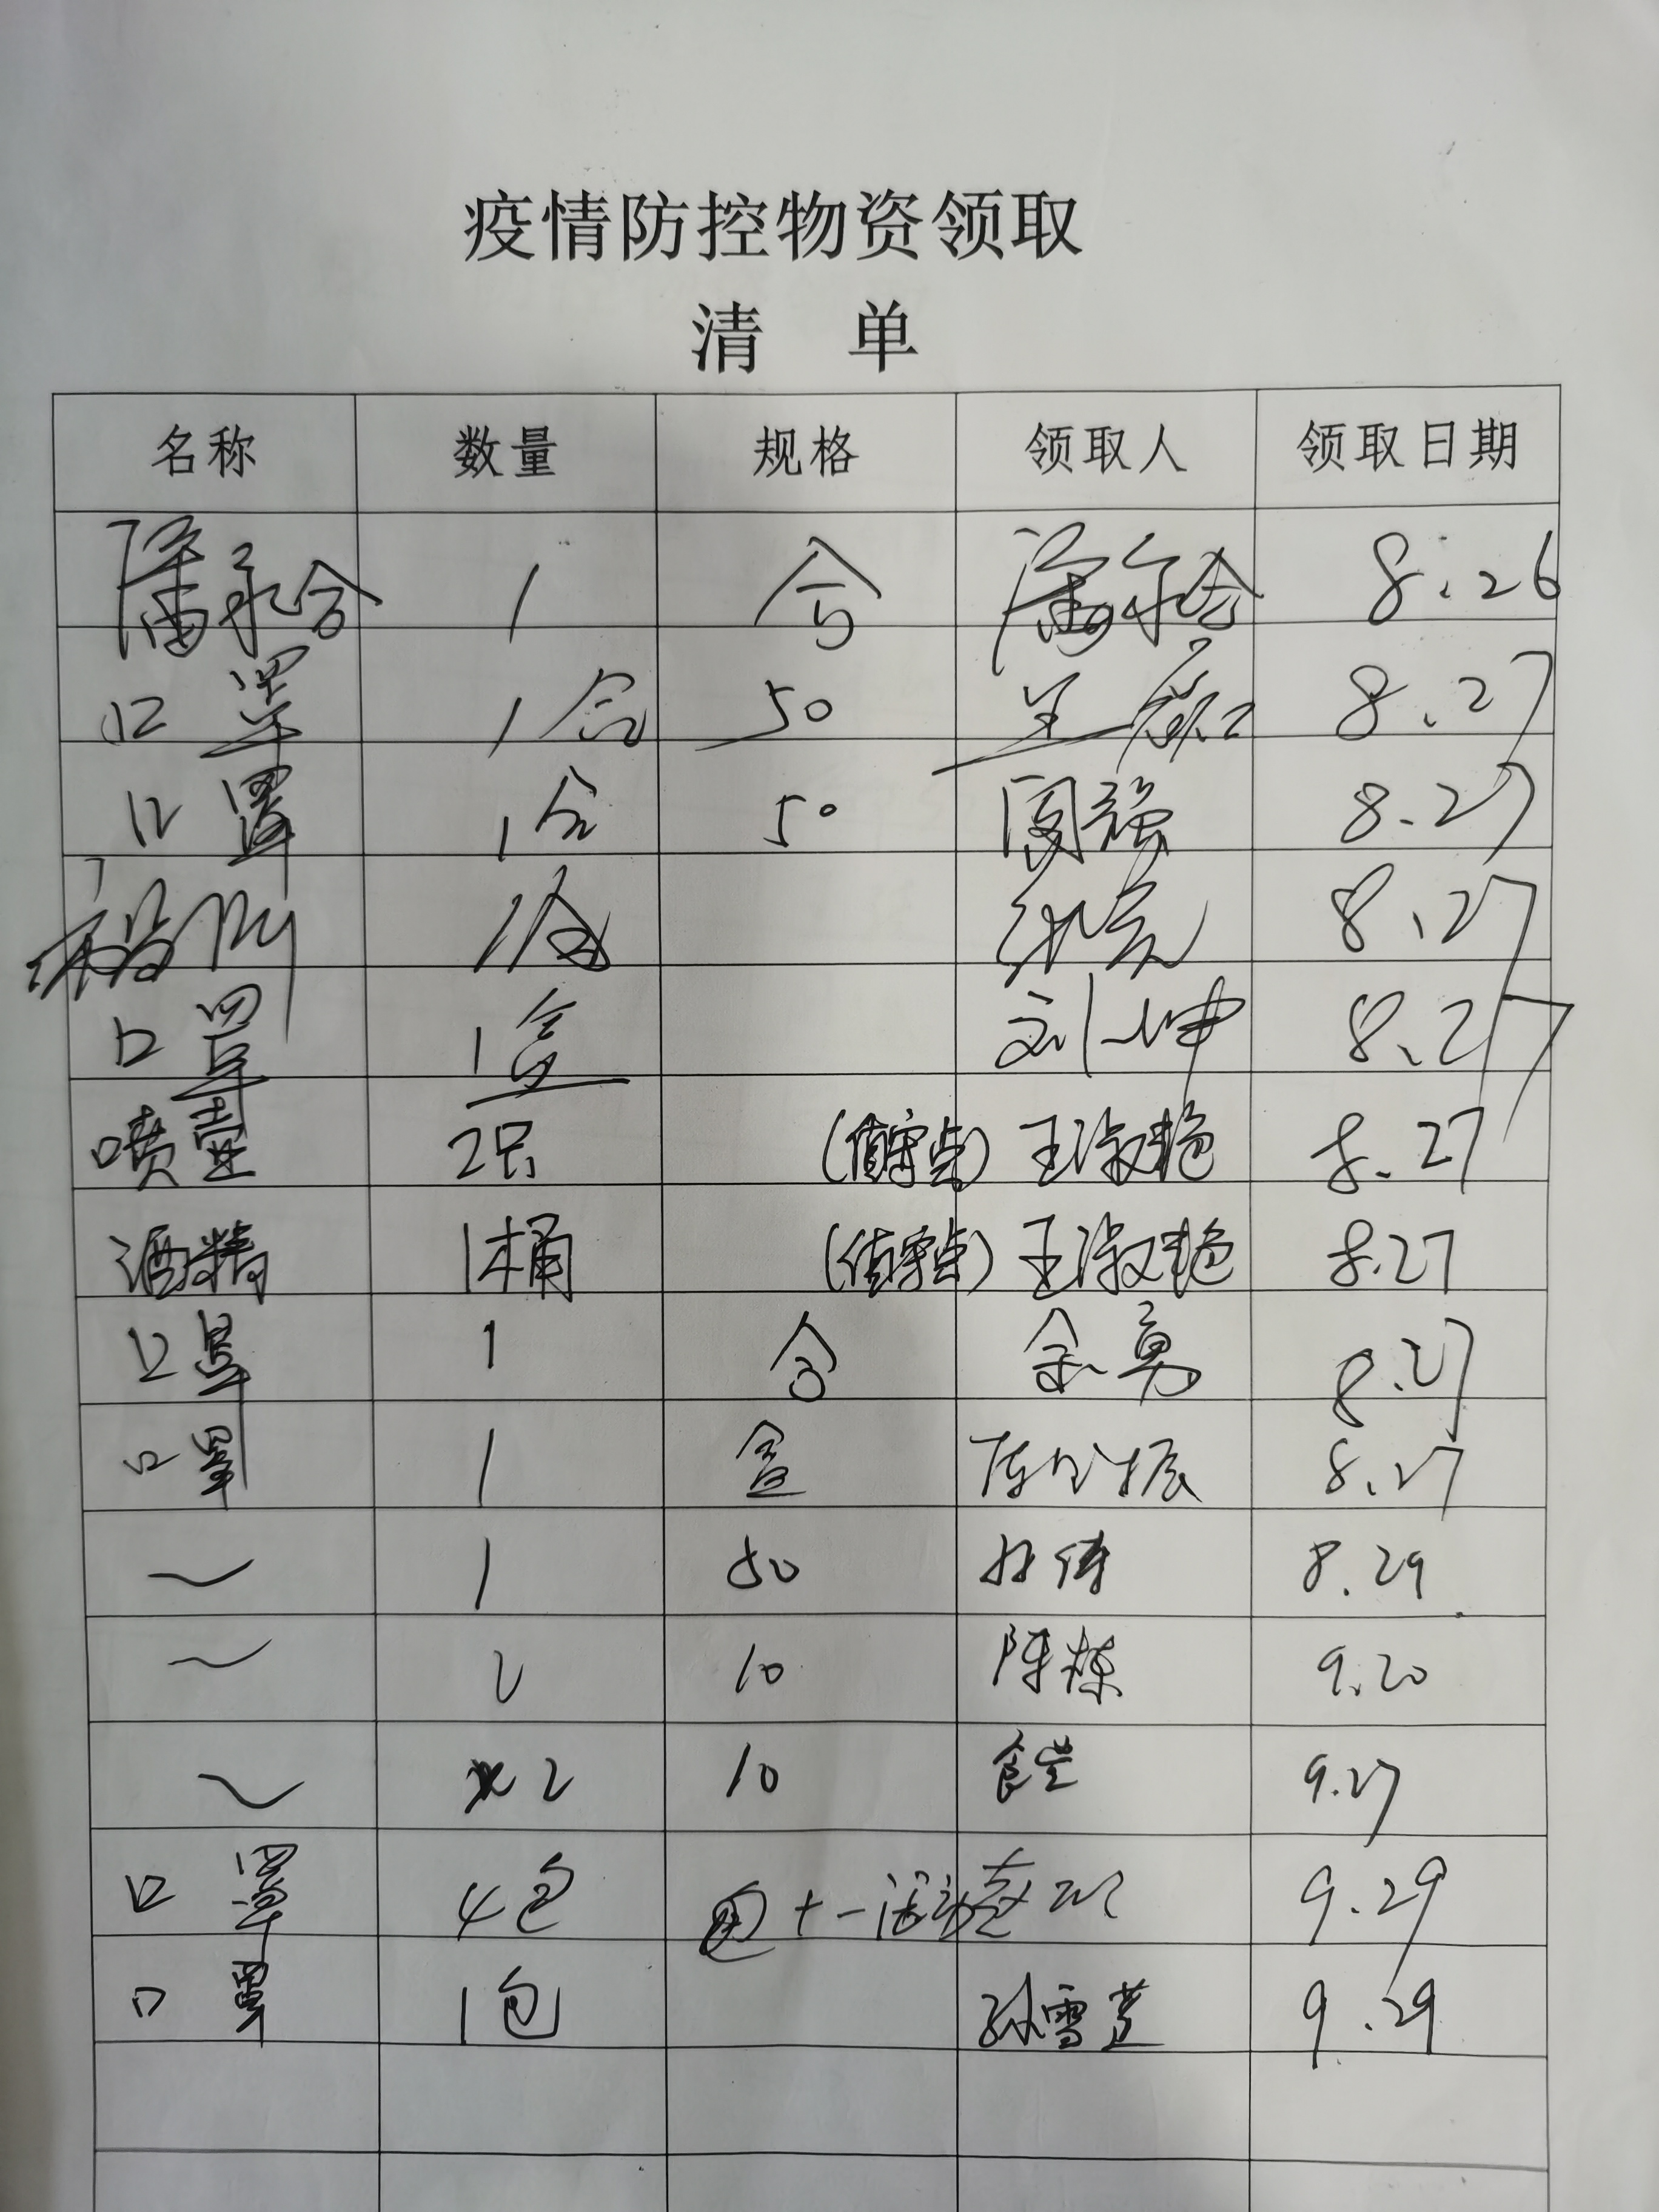 疫情防控物资领取
清 单
名称 数量 规格 领取人 领取日期
潘永合 1 合 潘永合 8.26
口罩 1合 50 8.27
口罩 1合 50 闫强 8.27
1盒 8.27
口罩 1盒 刘坤 8.27
喷壶 2只 (值守点) 王淑艳 8.27
酒精 1桶 (值守点) 王淑艳 8.27
口罩 1 合 余勇 8.27
口罩 1 盒 8.27
〜 1 50 8.29
〜 2 10 陈栋 9.20
〜 2 10 食堂 9.27
口罩 4包 9.29
口罩 1包 孙雪芝 9.29